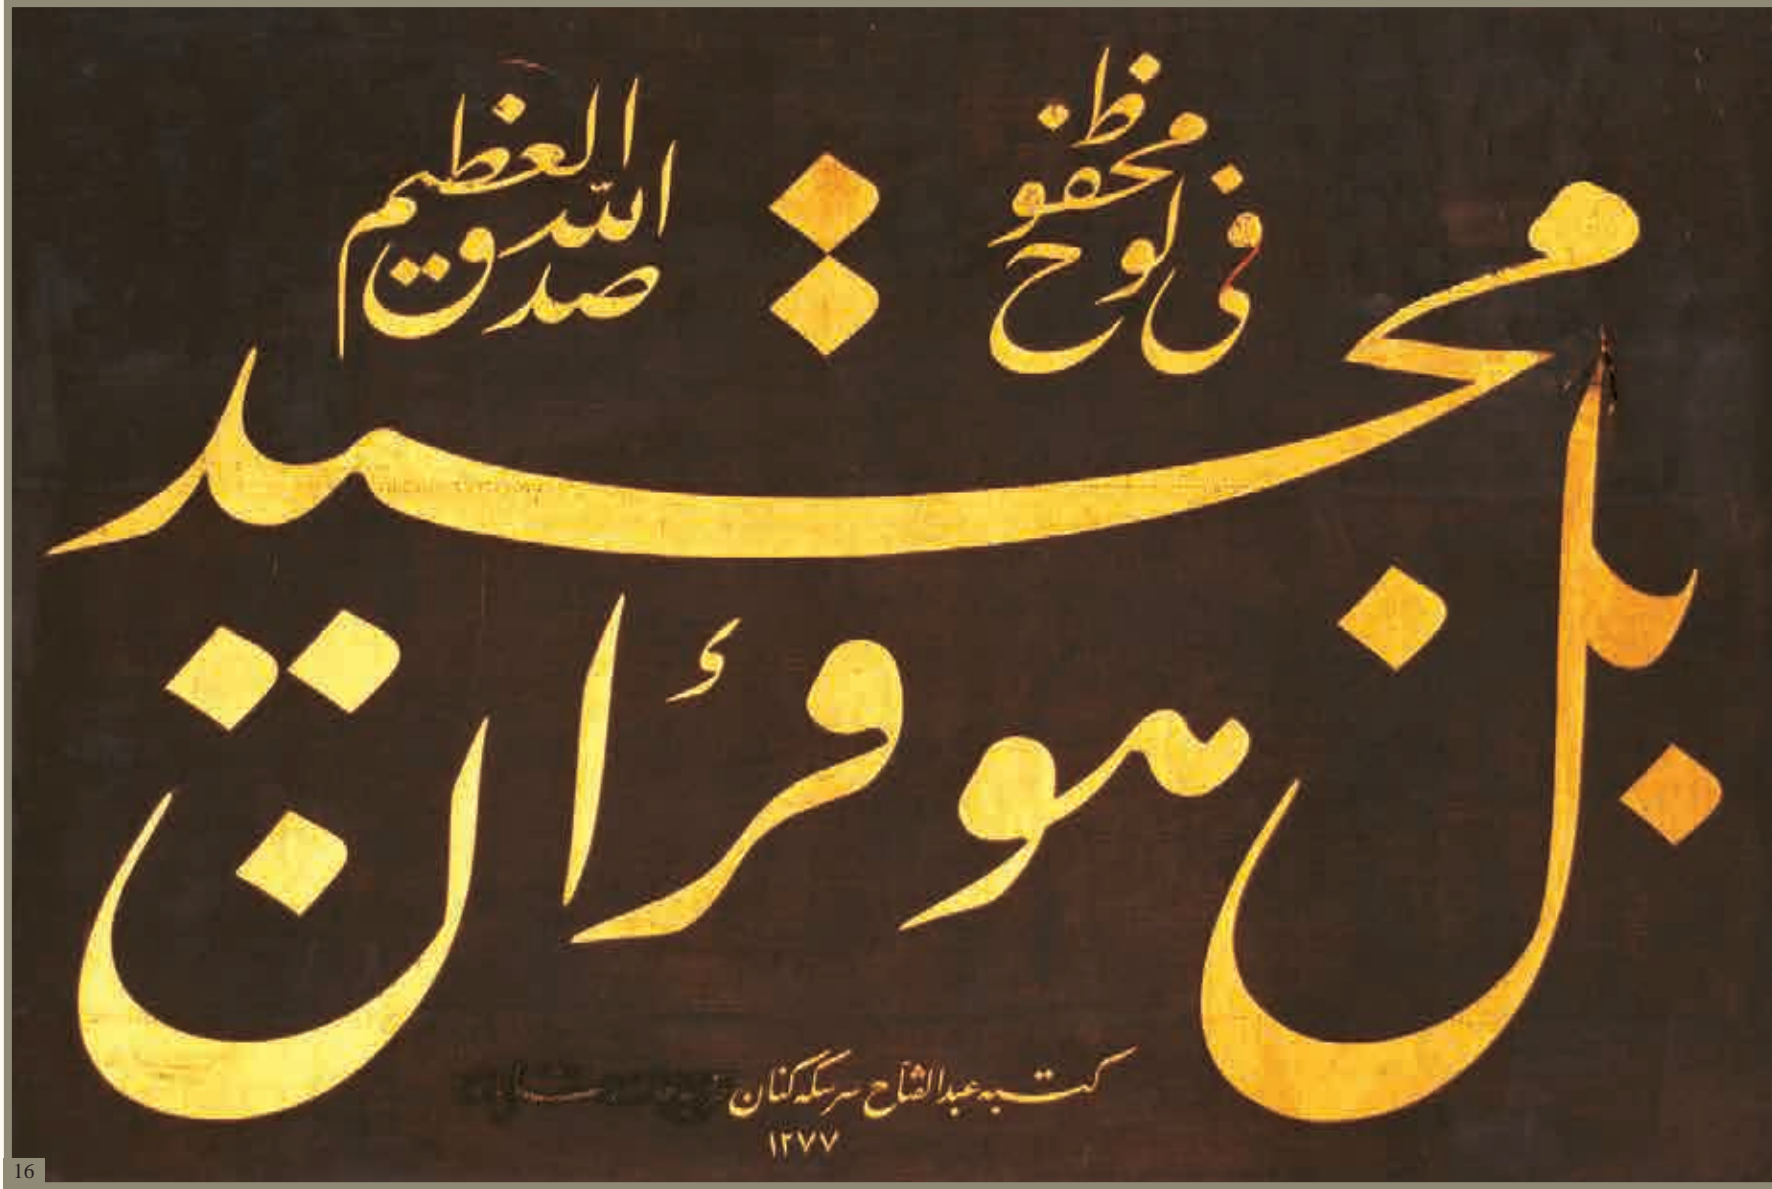 بل هو قرأن مجيد
فى لوح محفوظ
صدق الله العظيم
كتبه عبد الفتاح سر سكه كنان
١٢٧٧
16